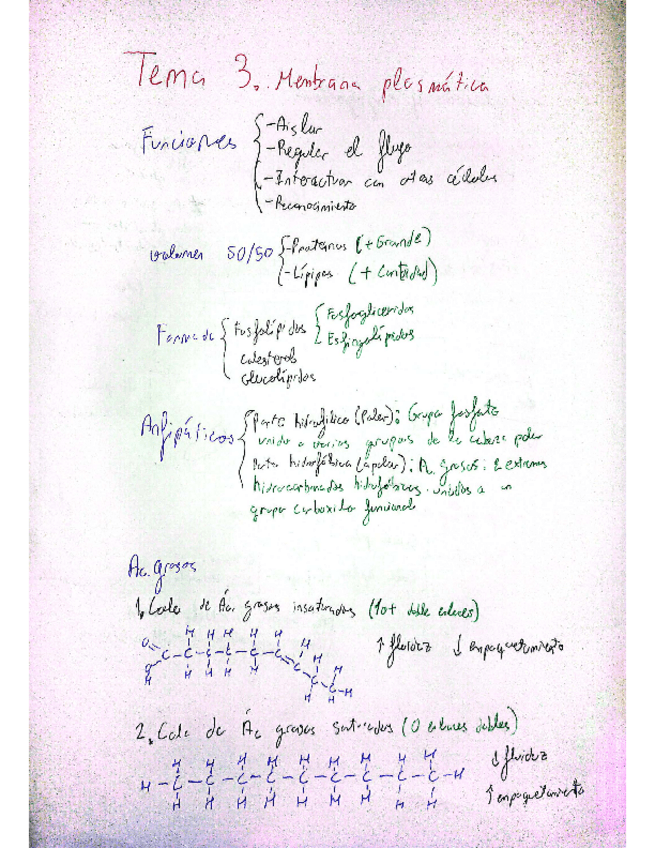 Tema 3. Membrana plasmática
Funciones
-Aislar
-Regular el flujo
-Interactuar con otras células
-Reconocimiento
volumen 50/50
-Proteínas (+Grande)
-Lípidos (+ Cantidad)
Formado
Fosfolípidos
Fosfoglicéridos
Esfingolípidos
colesterol
Glucolípidos
Anfipáticos
Parte hidrofílica (Polar): Grupo fosfato
unido a varios grupos de la cabeza polar
Parte hidrofóbica (apolar): A. grasos: 2 extremos
hidrocarbonados hidrofóbicos unidos a un
grupo carboxilo funcional
Ac. grasos
1. Cola de Ác. grasos insaturados (1o+ doble enlaces)
↑ fluidez ↓ empaquetamiento
O H H H H H H
C-C-C-C-C-C=C
O H H H H H H
H H C-H
2. Cola de Ác grasos saturados (0 enlaces dobles)
↓ fluidez
H H H H H H H H H
H-C-C-C-C-C-C-C-C-C-H
H H H H H H H H H
↑ empaquetamiento